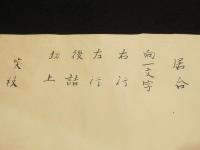 居合
向一文字
右行
左行
後詰
切上